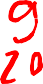 9
20